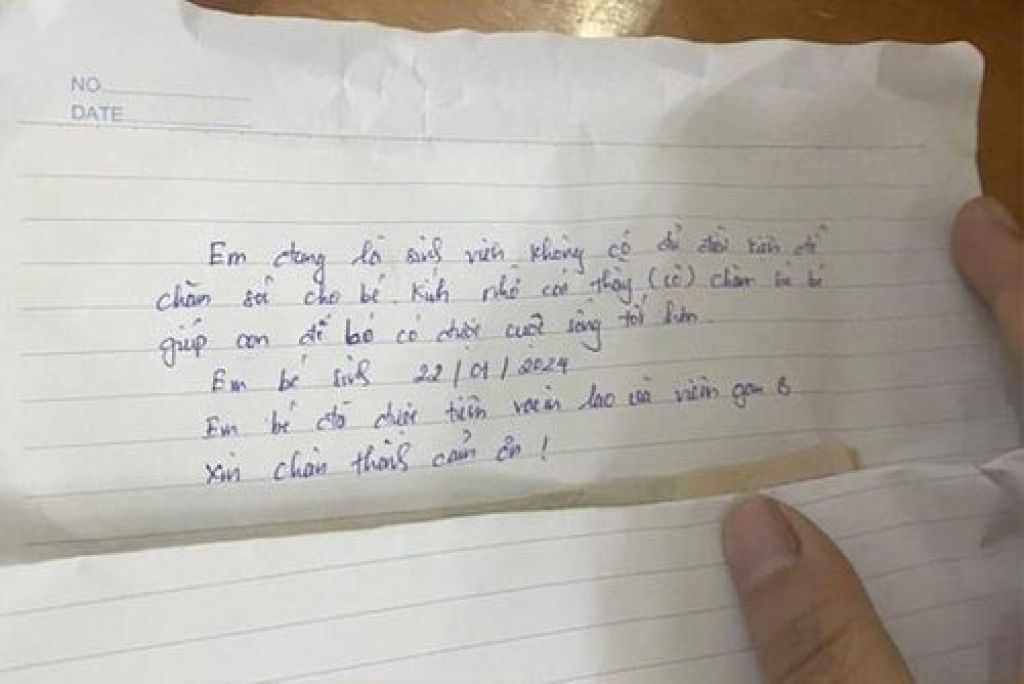 NO
DATE
Em đang là sinh viên không có đủ điều kiện để
chăm sóc cho bé. Kính nhờ các thầy (cô) chăm bé
giúp con để bé có được cuộc sống tốt hơn.
Em bé sinh 22/01/2024
Em bé đã được tiêm vacin lao và viêm gan B
Xin chân thành cảm ơn!